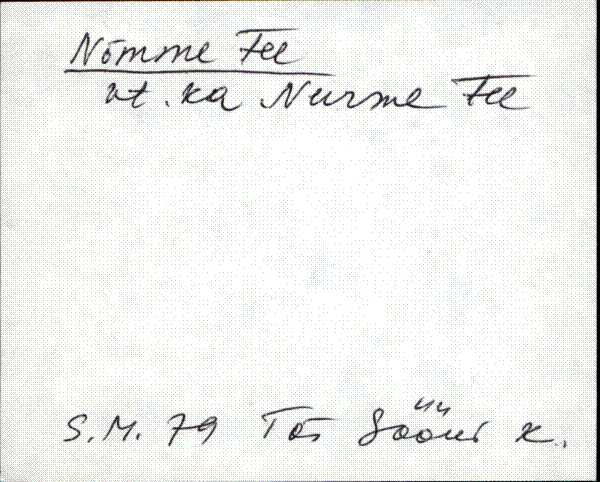 Nõmme Tee
vt. ka Nurme Tee
S.M. 79 Tõs k.